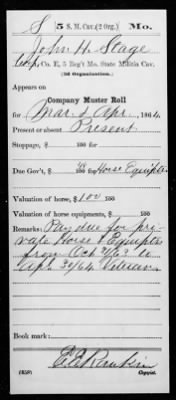 S 5 S. M. Cav. (2 Org.) Mo.
John H. Stage
Corp, Co. E, 5 Reg't Mo. State Militia Cav.
(2d Organization.)
Appears on
Company Muster Roll
for Mar. & Apr., 1864.
Present or absent Present
Stoppage, $ 100 for
Due Gov't, $ 100 for Horse Equipts
Valuation of horse, $ 100 100
Valuation of horse equipments, $ 100
Remarks: Pay due for pri-
vate Horse & Equipts
from Oct 31/63 to
Apl. 30/64 Veteran
Book mark:
E E Rankin
(858) Copyist.